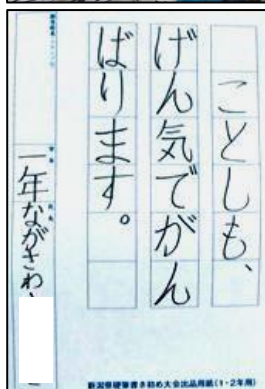 ことしも、
げん気でがん
ばります。
一年ながさわ
新潟県硬筆書き初め大会出品用紙(1・2年用)